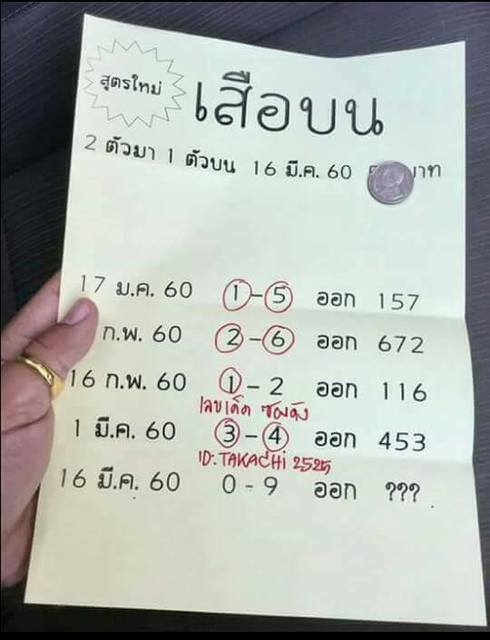 สูตรใหม่
เสือบน
2 ตัวมา 1 ตัวบน 16 มี.ค. 60
17 ม.ค. 60 1-5 ออก 157
ก.พ. 60 2-6 ออก 672
16 ก.พ. 60 1-2 ออก 116
เลขเด็ด ซองดัง
1 มี.ค. 60 3-4 ออก 453
ID:TAKACHI 2525
16 มี.ค. 60 0-9 ออก ???